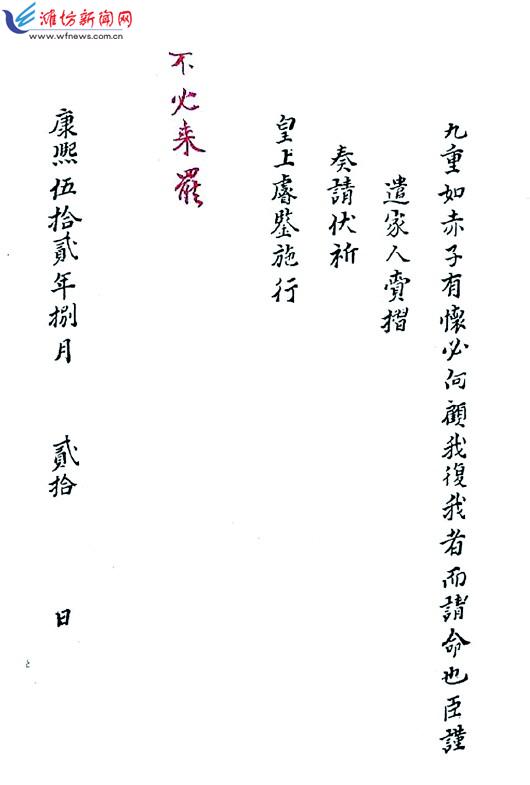 潍坊新闻网
www.wfnews.com.cn
九重如赤子有懷必何顧我復我者而請命也臣謹
遣家人賫摺
奏請伏祈
皇上睿鑒施行
不必来罷
康熙伍拾貳年捌月 貳拾 日